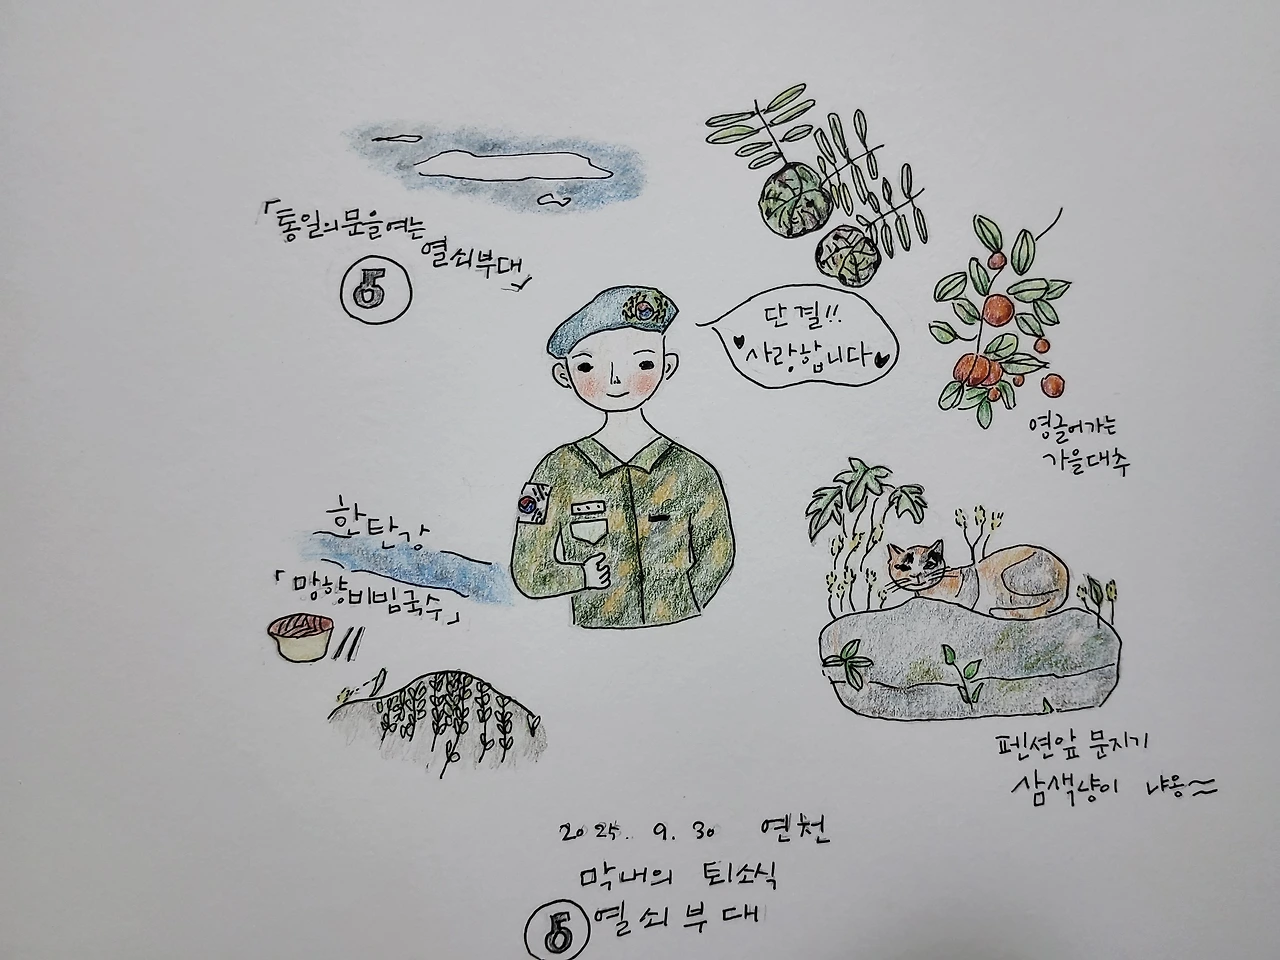 「통일의 문을 여는
열쇠부대」
단결!!
사랑합니다
영글어가는
가을대추
한탄강
「망향비빔국수」
펜션앞 문지기
삼색냥이 냐옹~
2025. 9. 30 연천
막내의 퇴소식
열쇠부대